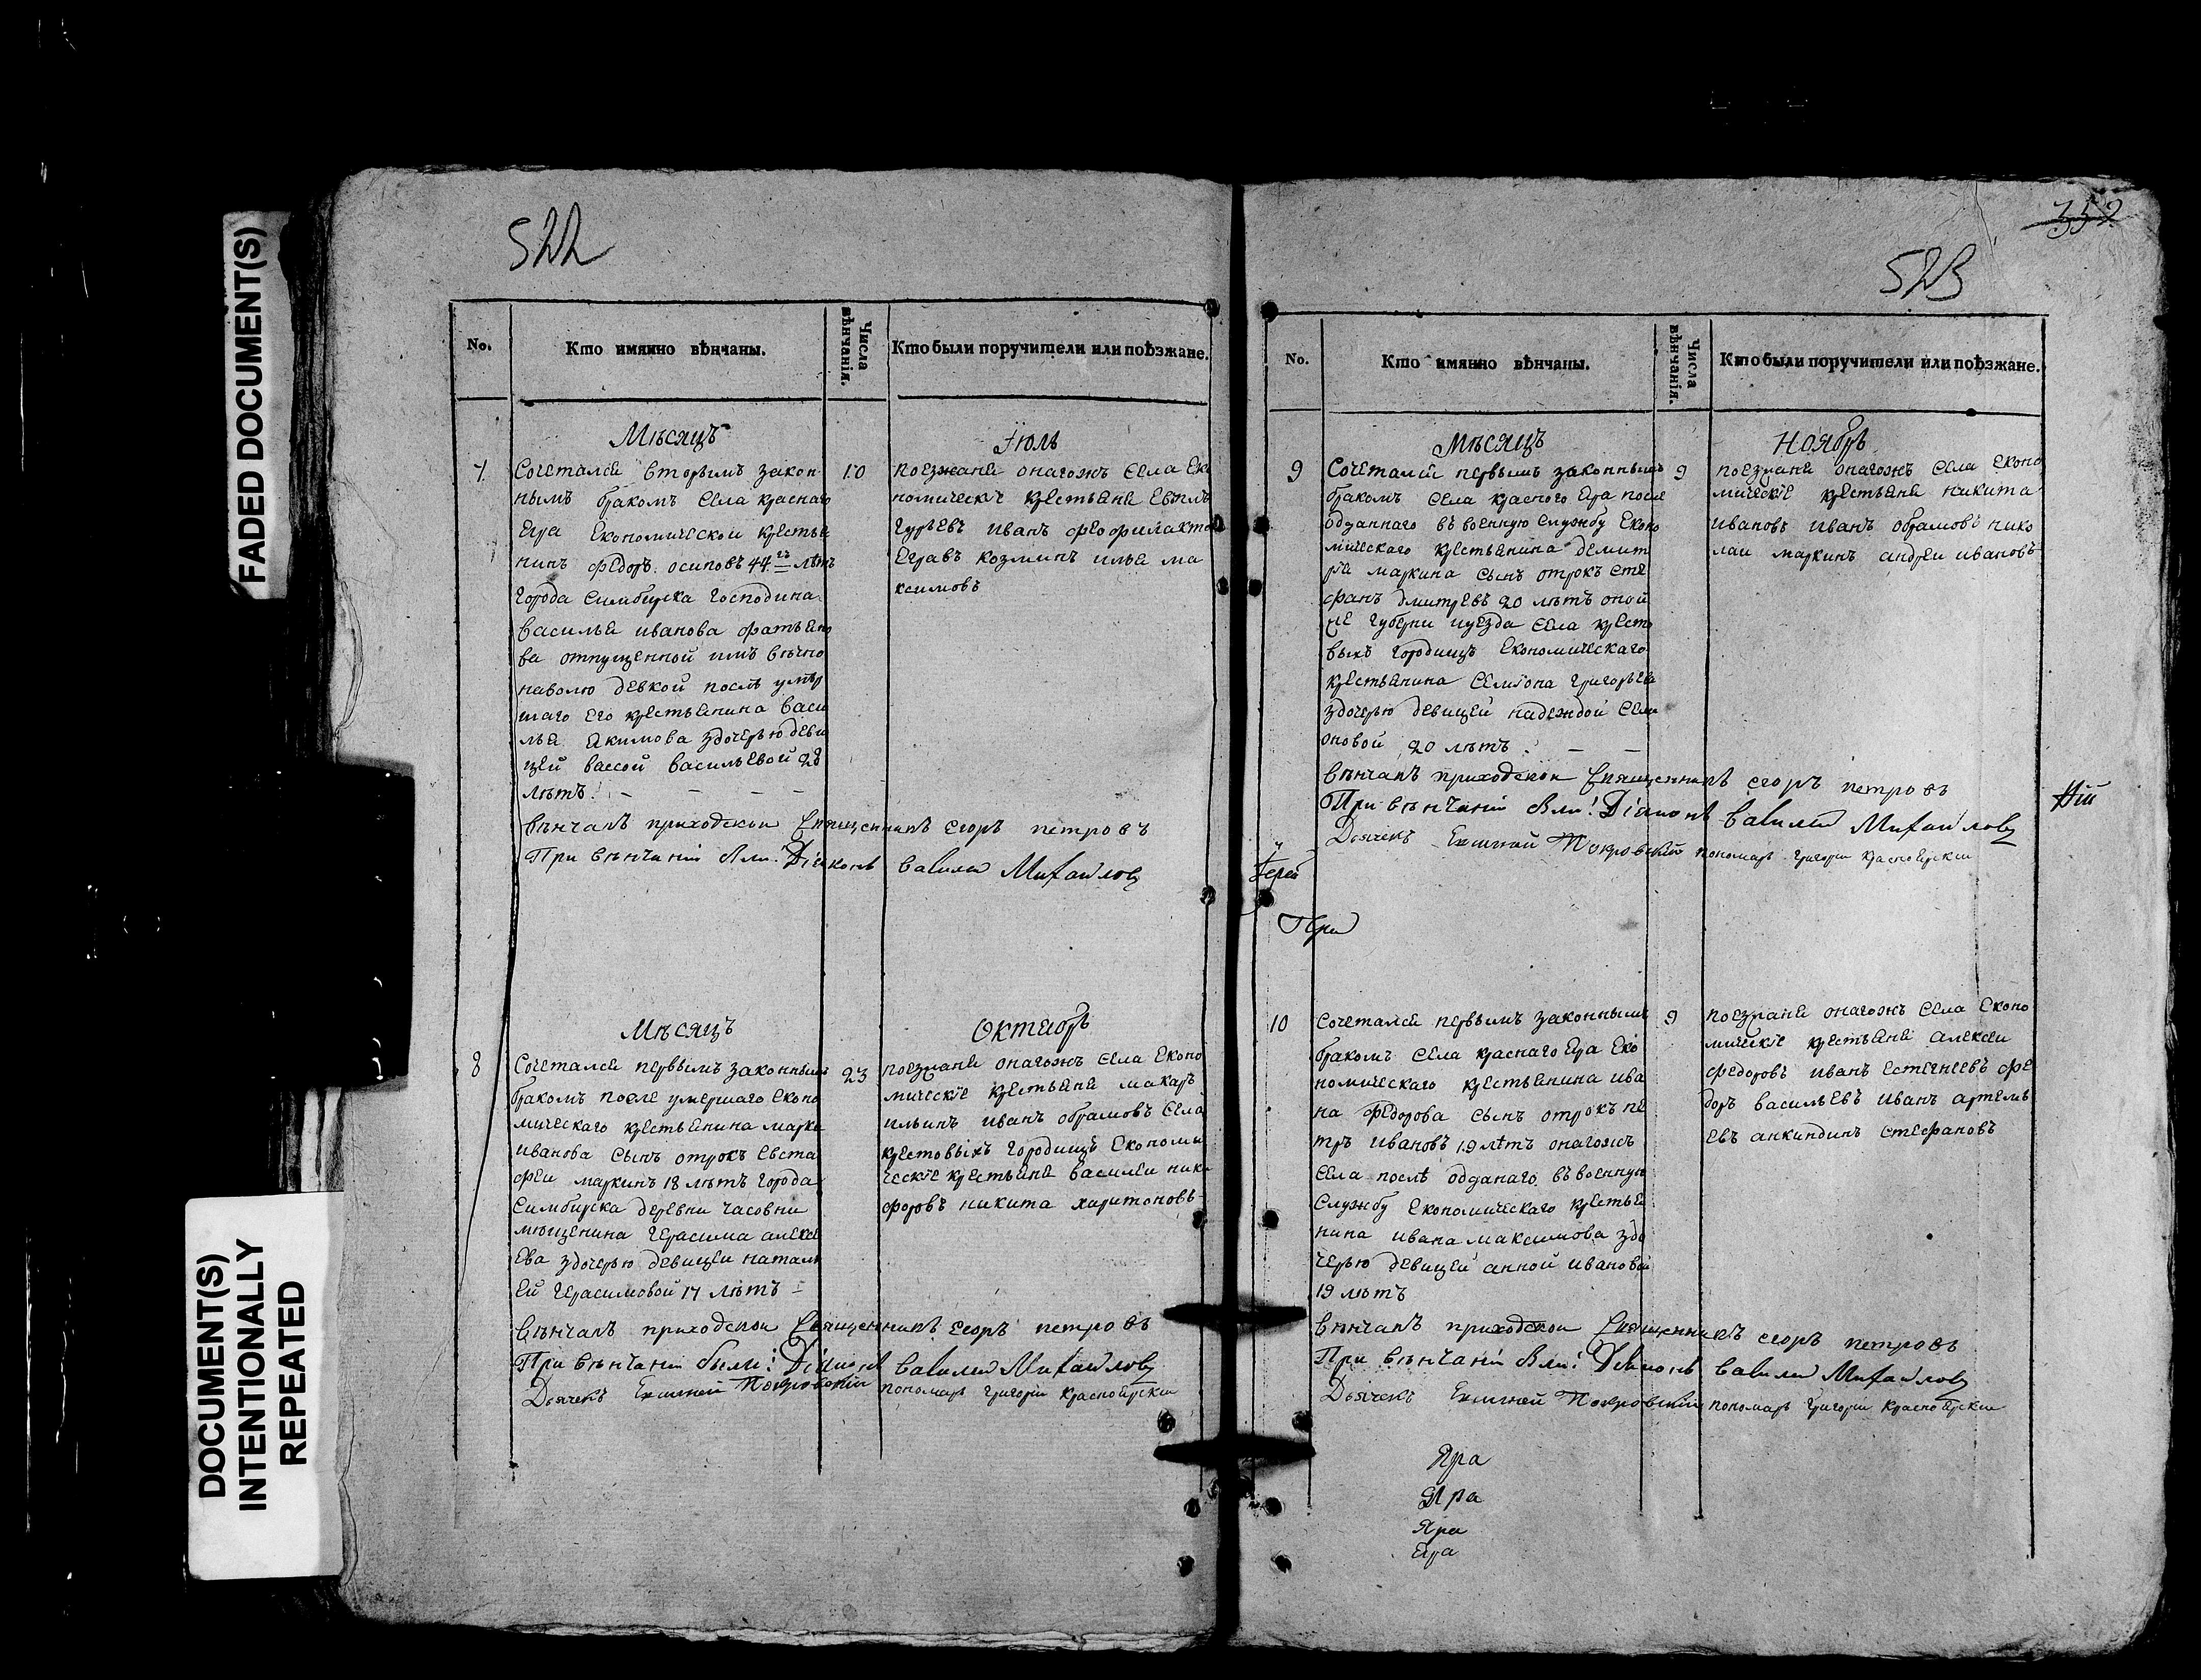 FADED DOCUMENT(S)
DOCUMENT(S)
INTENTIONALLY
REPEATED
522
No.
Кто имянно вѣнчаны.
Числа вѣнчанія.
Кто были поручители или поѣзжане.
Мѣсяцъ
Іюль
7
Сочетался вторымъ закон
нымъ бракомъ села краснаго
Яра Економической крестья
нинъ федоръ осиповъ 44 лѣтъ
города Симбирска Господина
василья иванова фатьяно
ва отпущенной имъ вѣчно
наволю девкой послѣ умер
шаго его крестьянина васи
лья акимова здочерью деви
цей вассой васильевой 28
лѣтъ.
10
поезжаня онагожъ села Еко
номическіе крестьяня
гурьевъ иванъ феофилакто
козминъ илья ма
ксимовъ
вѣнчалъ приходской Священникъ егоръ петровъ
При вѣнчаніи были: Діаконъ Михайловъ
Мѣсяцъ
Октябрь
8
Сочетался первымъ законнымъ
бракомъ после умершаго Еконо
мическаго крестьянина марка
иванова сынъ отрокъ Евста
феи маркинъ 18 лѣтъ города
Симбирска деревни часовни
мющенина герасима алексе
ева здочерью девицеи наталь
ей герасимовой 17 лѣтъ
23
поезжаня онагожъ села Еконо
мическіе крестьяня макаръ
ильинъ иванъ обрамовъ села
крестовыхъ городищъ Економи
ческіе крестьяня василеи ники
форовъ никита харитоновъ
вѣнчалъ приходской Священникъ егоръ петровъ
При вѣнчаніи были: Діаконъ Михайловъ
Дьячекъ Покровскій пономарь григореи Красноярскии
352
523
No.
Кто имянно вѣнчаны.
Числа вѣнчанія.
Кто были поручители или поѣзжане.
Мѣсяцъ
Ноябрь
9
Сочетался первымъ законнымъ
бракомъ села красного Яра после
отданнаго въ военную службу Еконо
мическаго крестьянина демит
рія маркина сынъ отрокъ сте
фанъ дмитревъ 20 лѣтъ оной
же губерни иуезда села кресто
выхъ городищъ Економическаго
крестьянина семіона григорьева
здочерью девицей надеждой семи
оновой 20 лѣтъ.
9
поезжаня онагожъ села Еконо
мическіе крестьяня никита
ивановъ иванъ обрамовъ нико
лаи маркинъ андреи ивановъ
вѣнчалъ приходской Священникъ егоръ петровъ
При вѣнчаніи были: Діаконъ Михайловъ
Дьячекъ Покровскій пономарь григореи Красноярскии
Іерей
При
10
Сочетался первымъ законнымъ
бракомъ села краснаго Яра Еко
номическаго крестьянина ива
на федорова сынъ отрокъ пе
тръ ивановъ 19 лѣтъ онагожъ
села послѣ отданаго въ военную
Службу Економическаго крестья
нина ивана максимова здо
черью девицей анной ивановой
19 лѣтъ
9
поезжаня онагожъ села Еконо
мическіе крестьяня алексеи
федоровъ иванъ естегнеевъ фе
доръ васильевъ иванъ артемь
евъ анкиндинъ стефановъ
вѣнчалъ приходской Священникъ егоръ петровъ
При вѣнчаніи были: Діаконъ Михайловъ
Дьячекъ Покровскій пономарь григореи Красноярскии
Яра
Яра
Яра
Яра